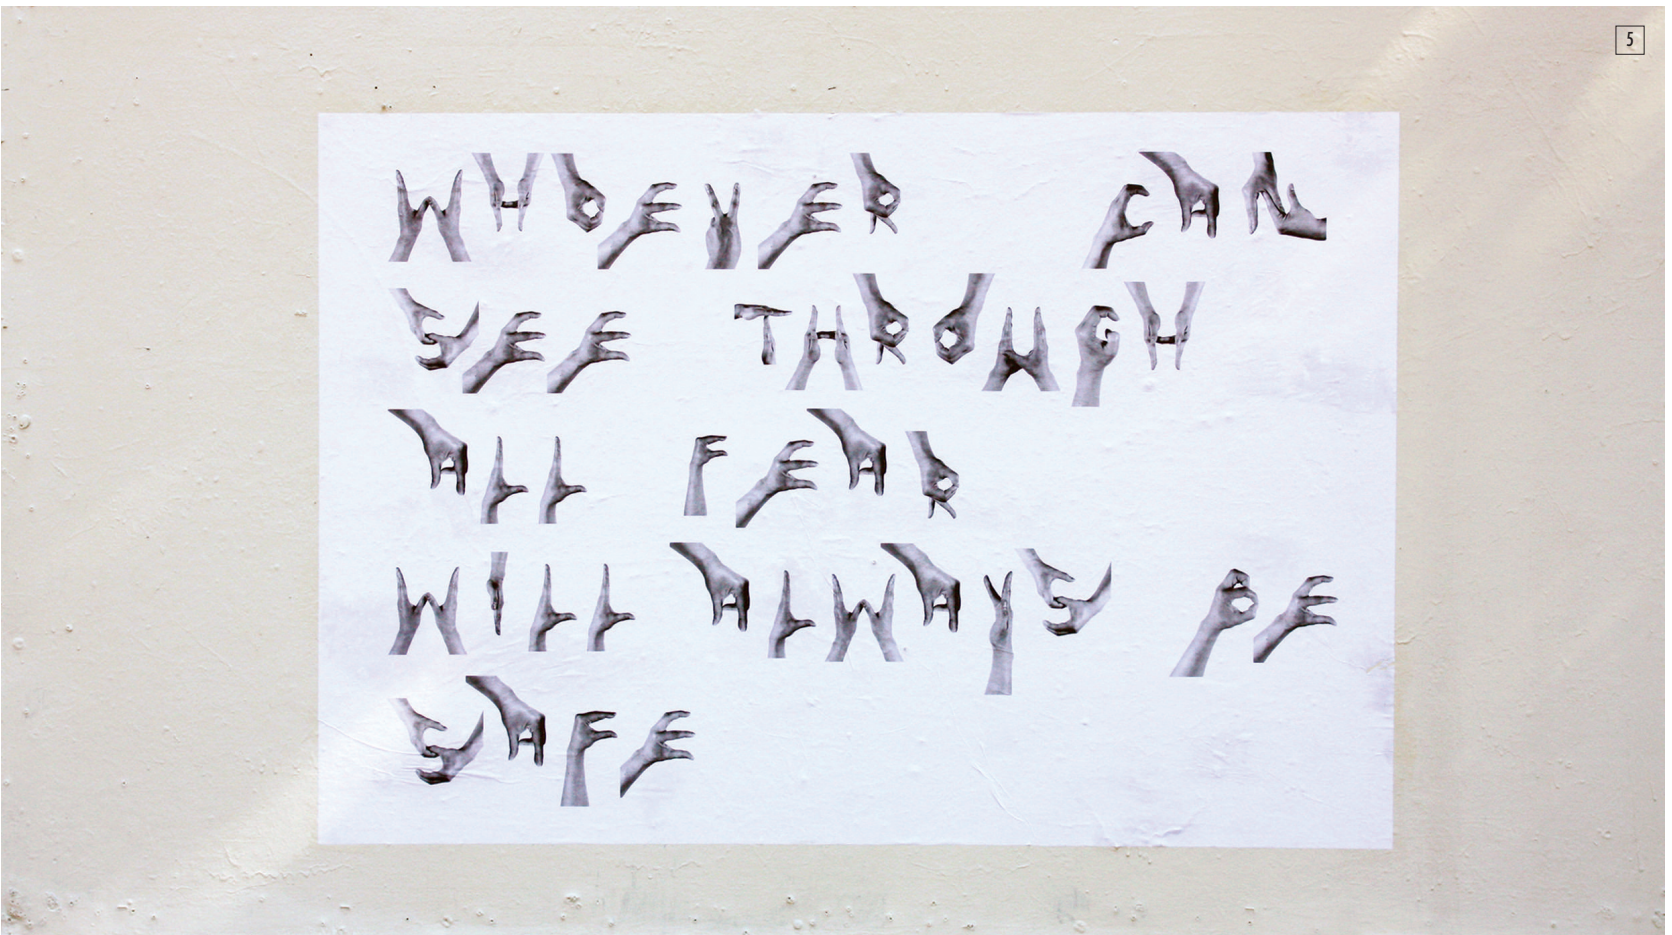 5
WHOEVER CAN
SEE THROUGH
ALL FEAR
WILL ALWAYS BE
SAFE